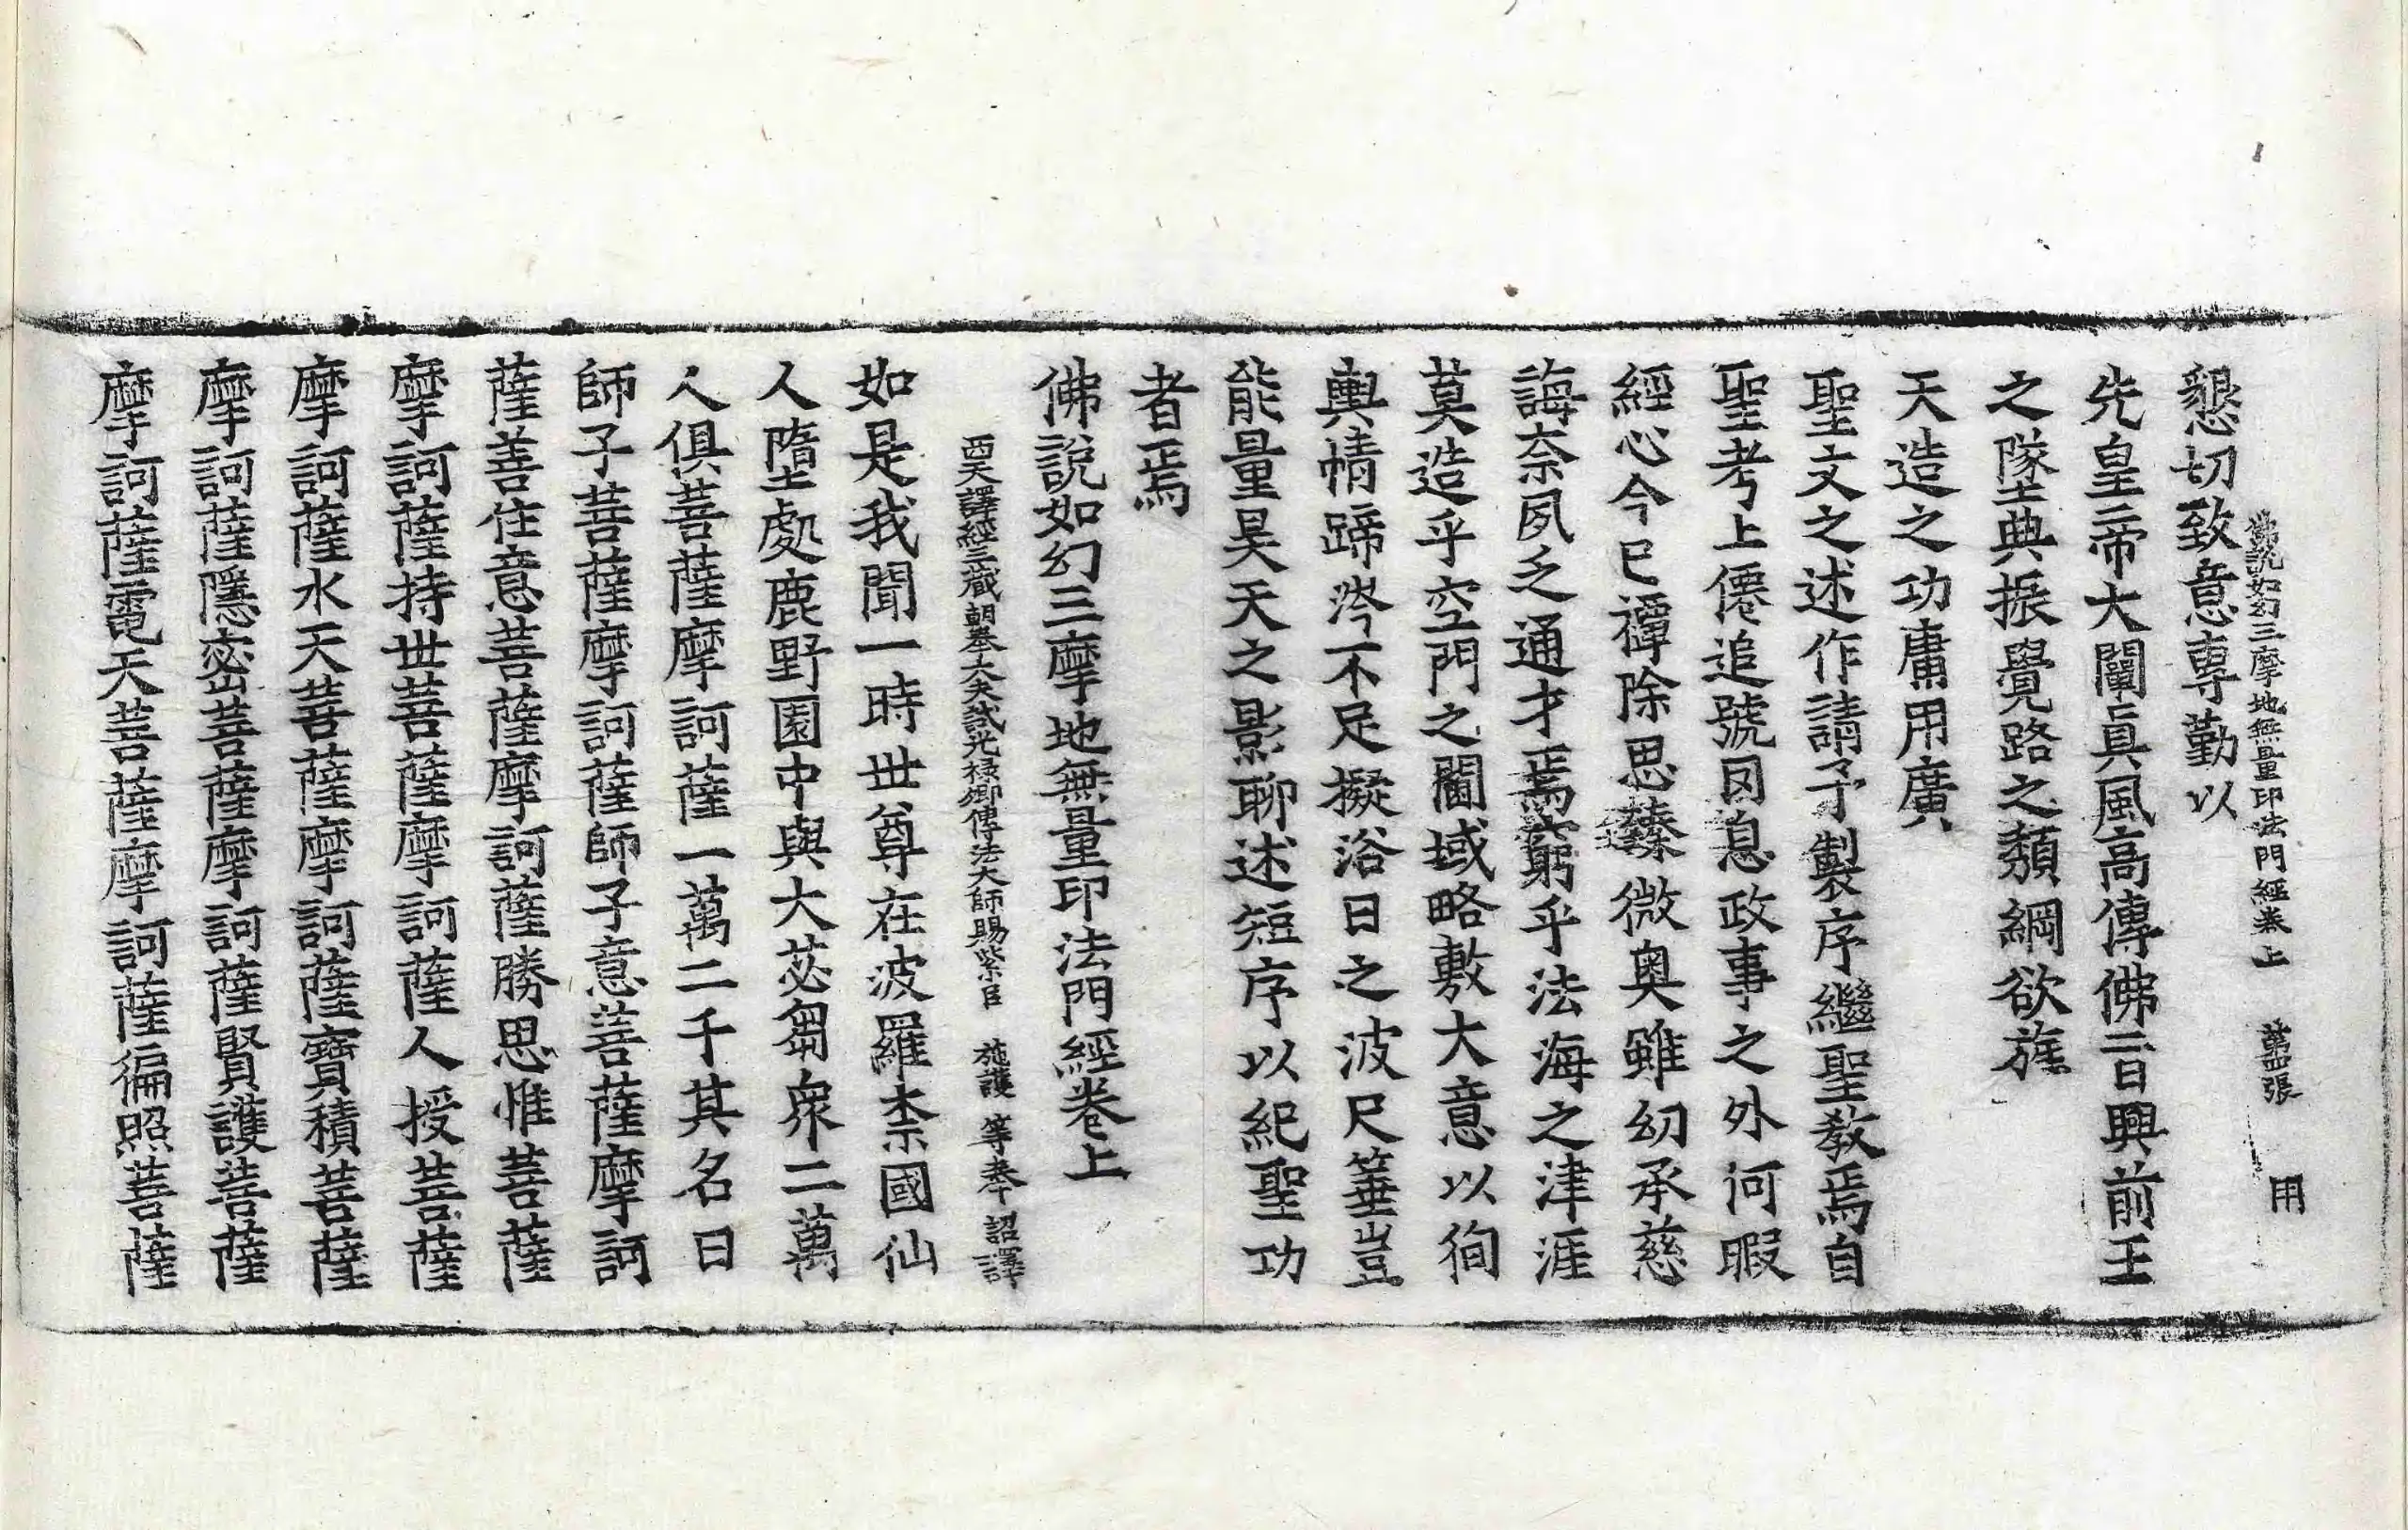 佛說如幻三摩地無量印法門經卷上 第四張 用
懇切致意專勤以
先皇帝大闡眞風高傳佛日興前王
之墜典振覺路之頹綱欲旌
天造之功庸用廣
聖文之述作請予製序繼聖教焉自
聖考上僊追號罔息政事之外何暇
經心今已禫除思臻微奧雖幼承慈
誨奈夙乏通才焉窮乎法海之津涯
莫造乎空門之閫域略敷大意以徇
輿情蹄涔不足擬浴日之波尺箠豈
能量昊天之影聊述短序以紀聖功
者焉
佛說如幻三摩地無量印法門經卷上
西天譯經三藏朝奉大夫試光祿卿傳法大師賜紫臣 施護 等奉 詔譯
如是我聞一時世尊在波羅柰國仙
人墮處鹿野園中與大苾芻衆二萬
人俱菩薩摩訶薩一萬二千其名曰
師子菩薩摩訶薩師子意菩薩摩訶
薩善住意菩薩摩訶薩勝思惟菩薩
摩訶薩持世菩薩摩訶薩人授菩薩
摩訶薩水天菩薩摩訶薩寶積菩薩
摩訶薩隱密菩薩摩訶薩賢護菩薩
摩訶薩電天菩薩摩訶薩徧照菩薩